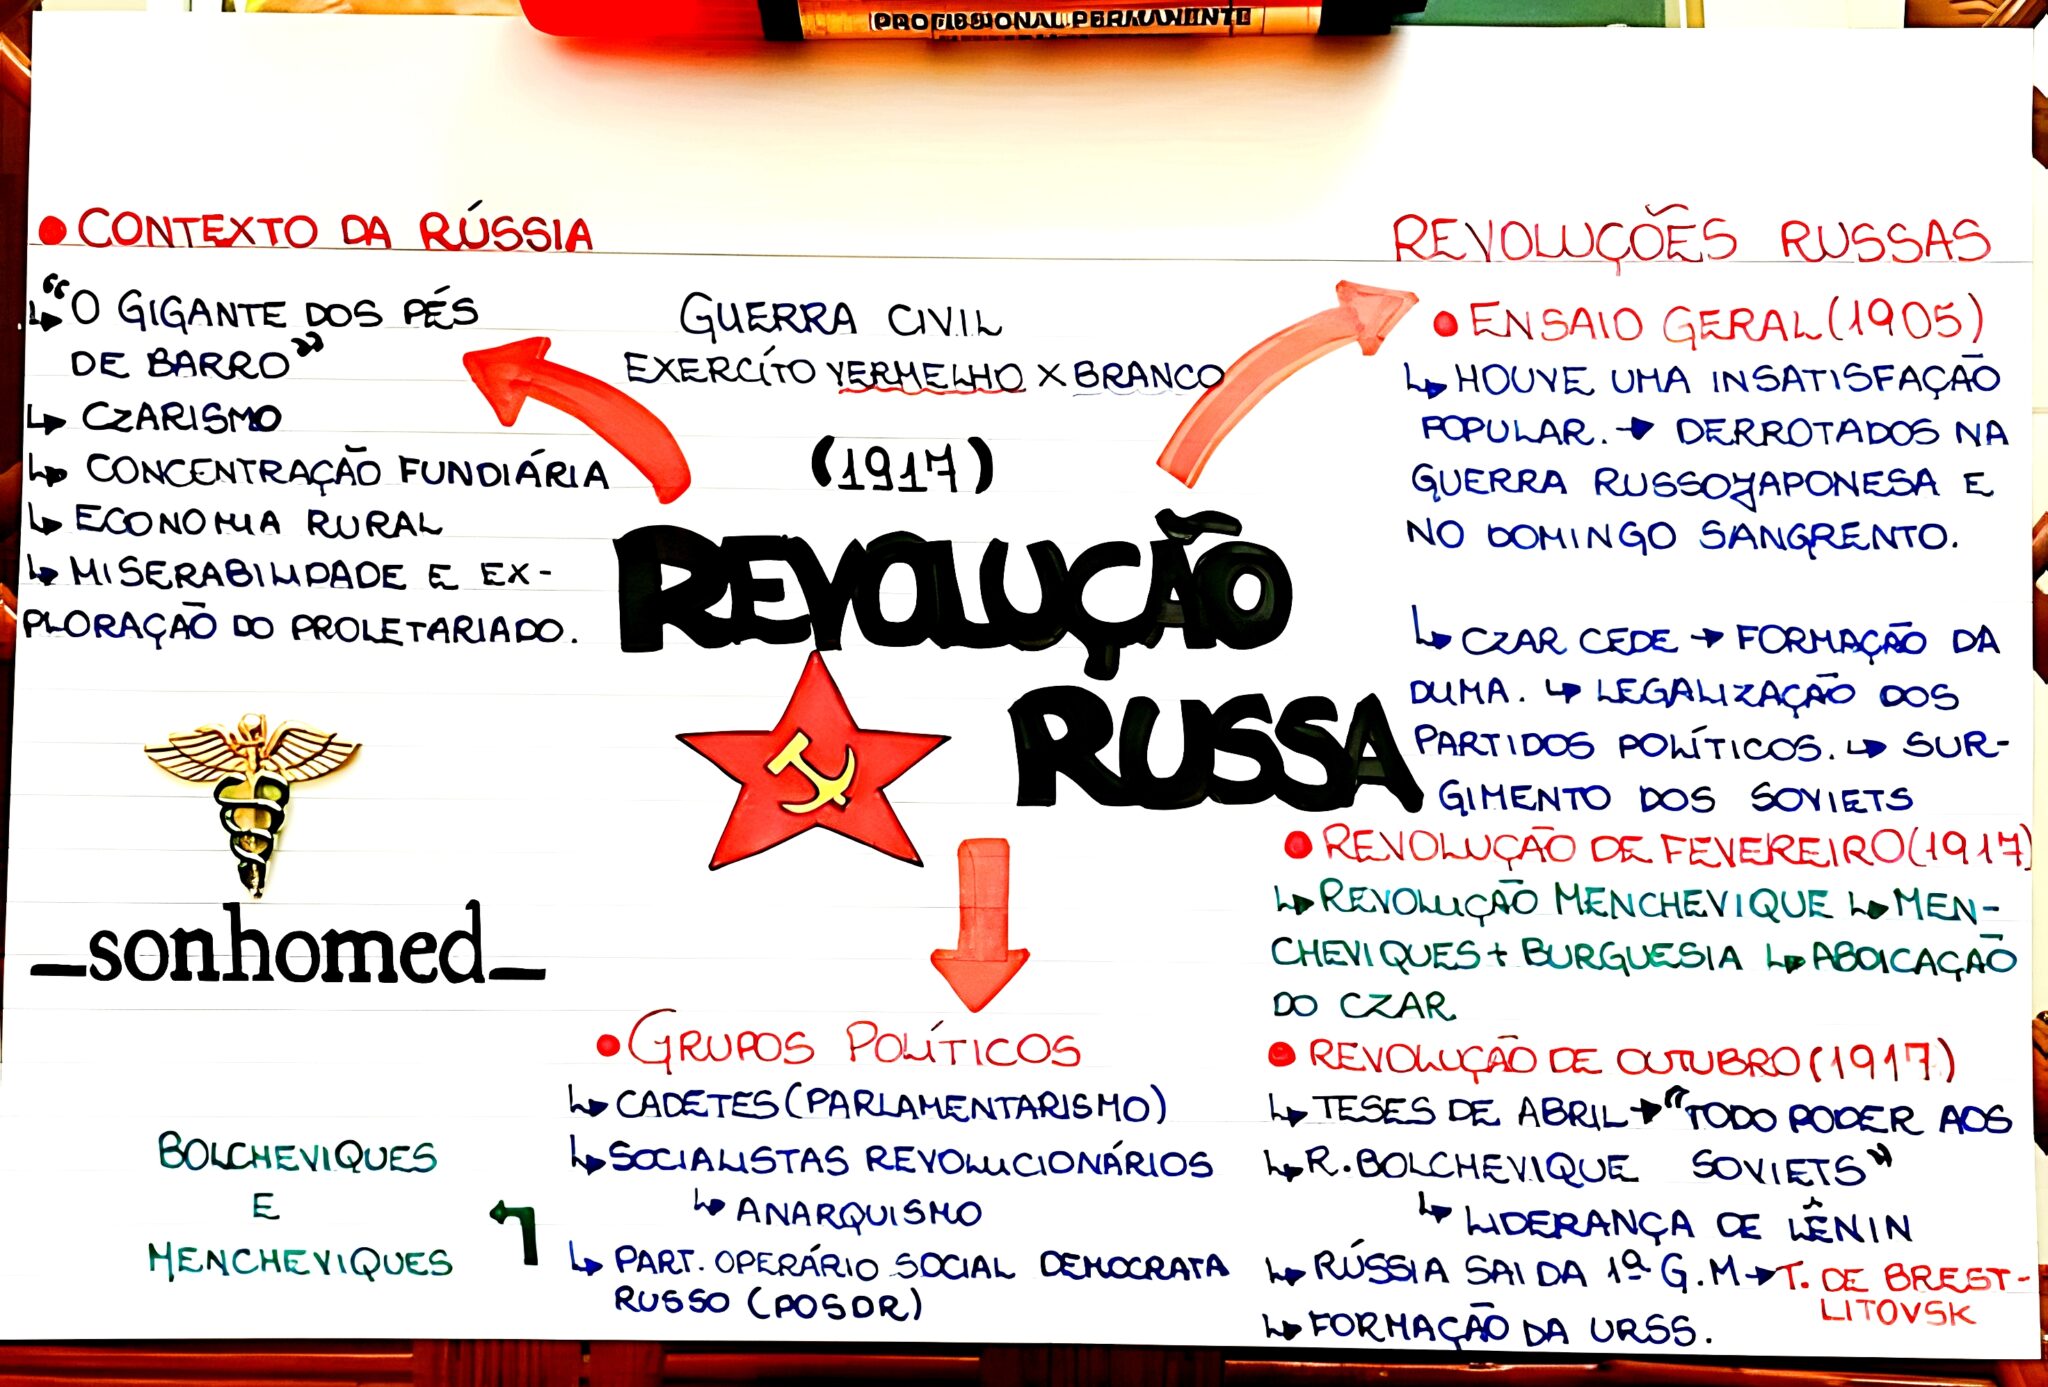 PROFISSIONAL PERMANENTE
CONTEXTO DA RÚSSIA
"O GIGANTE DOS PÉS
DE BARRO"
CZARISMO
CONCENTRAÇÃO FUNDIÁRIA
ECONOMIA RURAL
MISERABILIDADE E EX-
PLORAÇÃO DO PROLETARIADO.
_sonhomed_
GUERRA CIVIL
EXERCÍTO VERMELHO X BRANCO
(1917)
REVOLUÇÃO
RUSSA
GRUPOS POLÍTICOS
CADETES (PARLAMENTARISMO)
SOCIALISTAS REVOLUCIONÁRIOS
ANARQUISMO
PART. OPERÁRIO SOCIAL DEMOCRATA
RUSSO (POSDR)
BOLCHEVIQUES
E
MENCHEVIQUES
REVOLUÇÕES RUSSAS
ENSAIO GERAL (1905)
HOUVE UMA INSATISFAÇÃO
POPULAR. → DERROTADOS NA
GUERRA RUSSOJAPONESA E
NO DOMINGO SANGRENTO.
CZAR CEDE → FORMAÇÃO DA
DUMA. ↳ LEGALIZAÇÃO DOS
PARTIDOS POLÍTICOS. ↳ SUR-
GIMENTO DOS SOVIETS
REVOLUÇÃO DE FEVEREIRO (1917)
REVOLUÇÃO MENCHEVIQUE ↳ MEN-
CHEVIQUES + BURGUESIA ↳ ABDICAÇÃO
DO CZAR
REVOLUÇÃO DE OUTUBRO (1917)
TESES DE ABRIL → "TODO PODER AOS
R. BOLCHEVIQUE SOVIETS"
LIDERANÇA DE LÊNIN
RÚSSIA SAI DA 1ª G.M → T. DE BREST-
LITOVSK
FORMAÇÃO DA URSS.